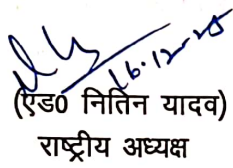 16.12.25
(एड0 नितिन यादव)
राष्ट्रीय अध्यक्ष